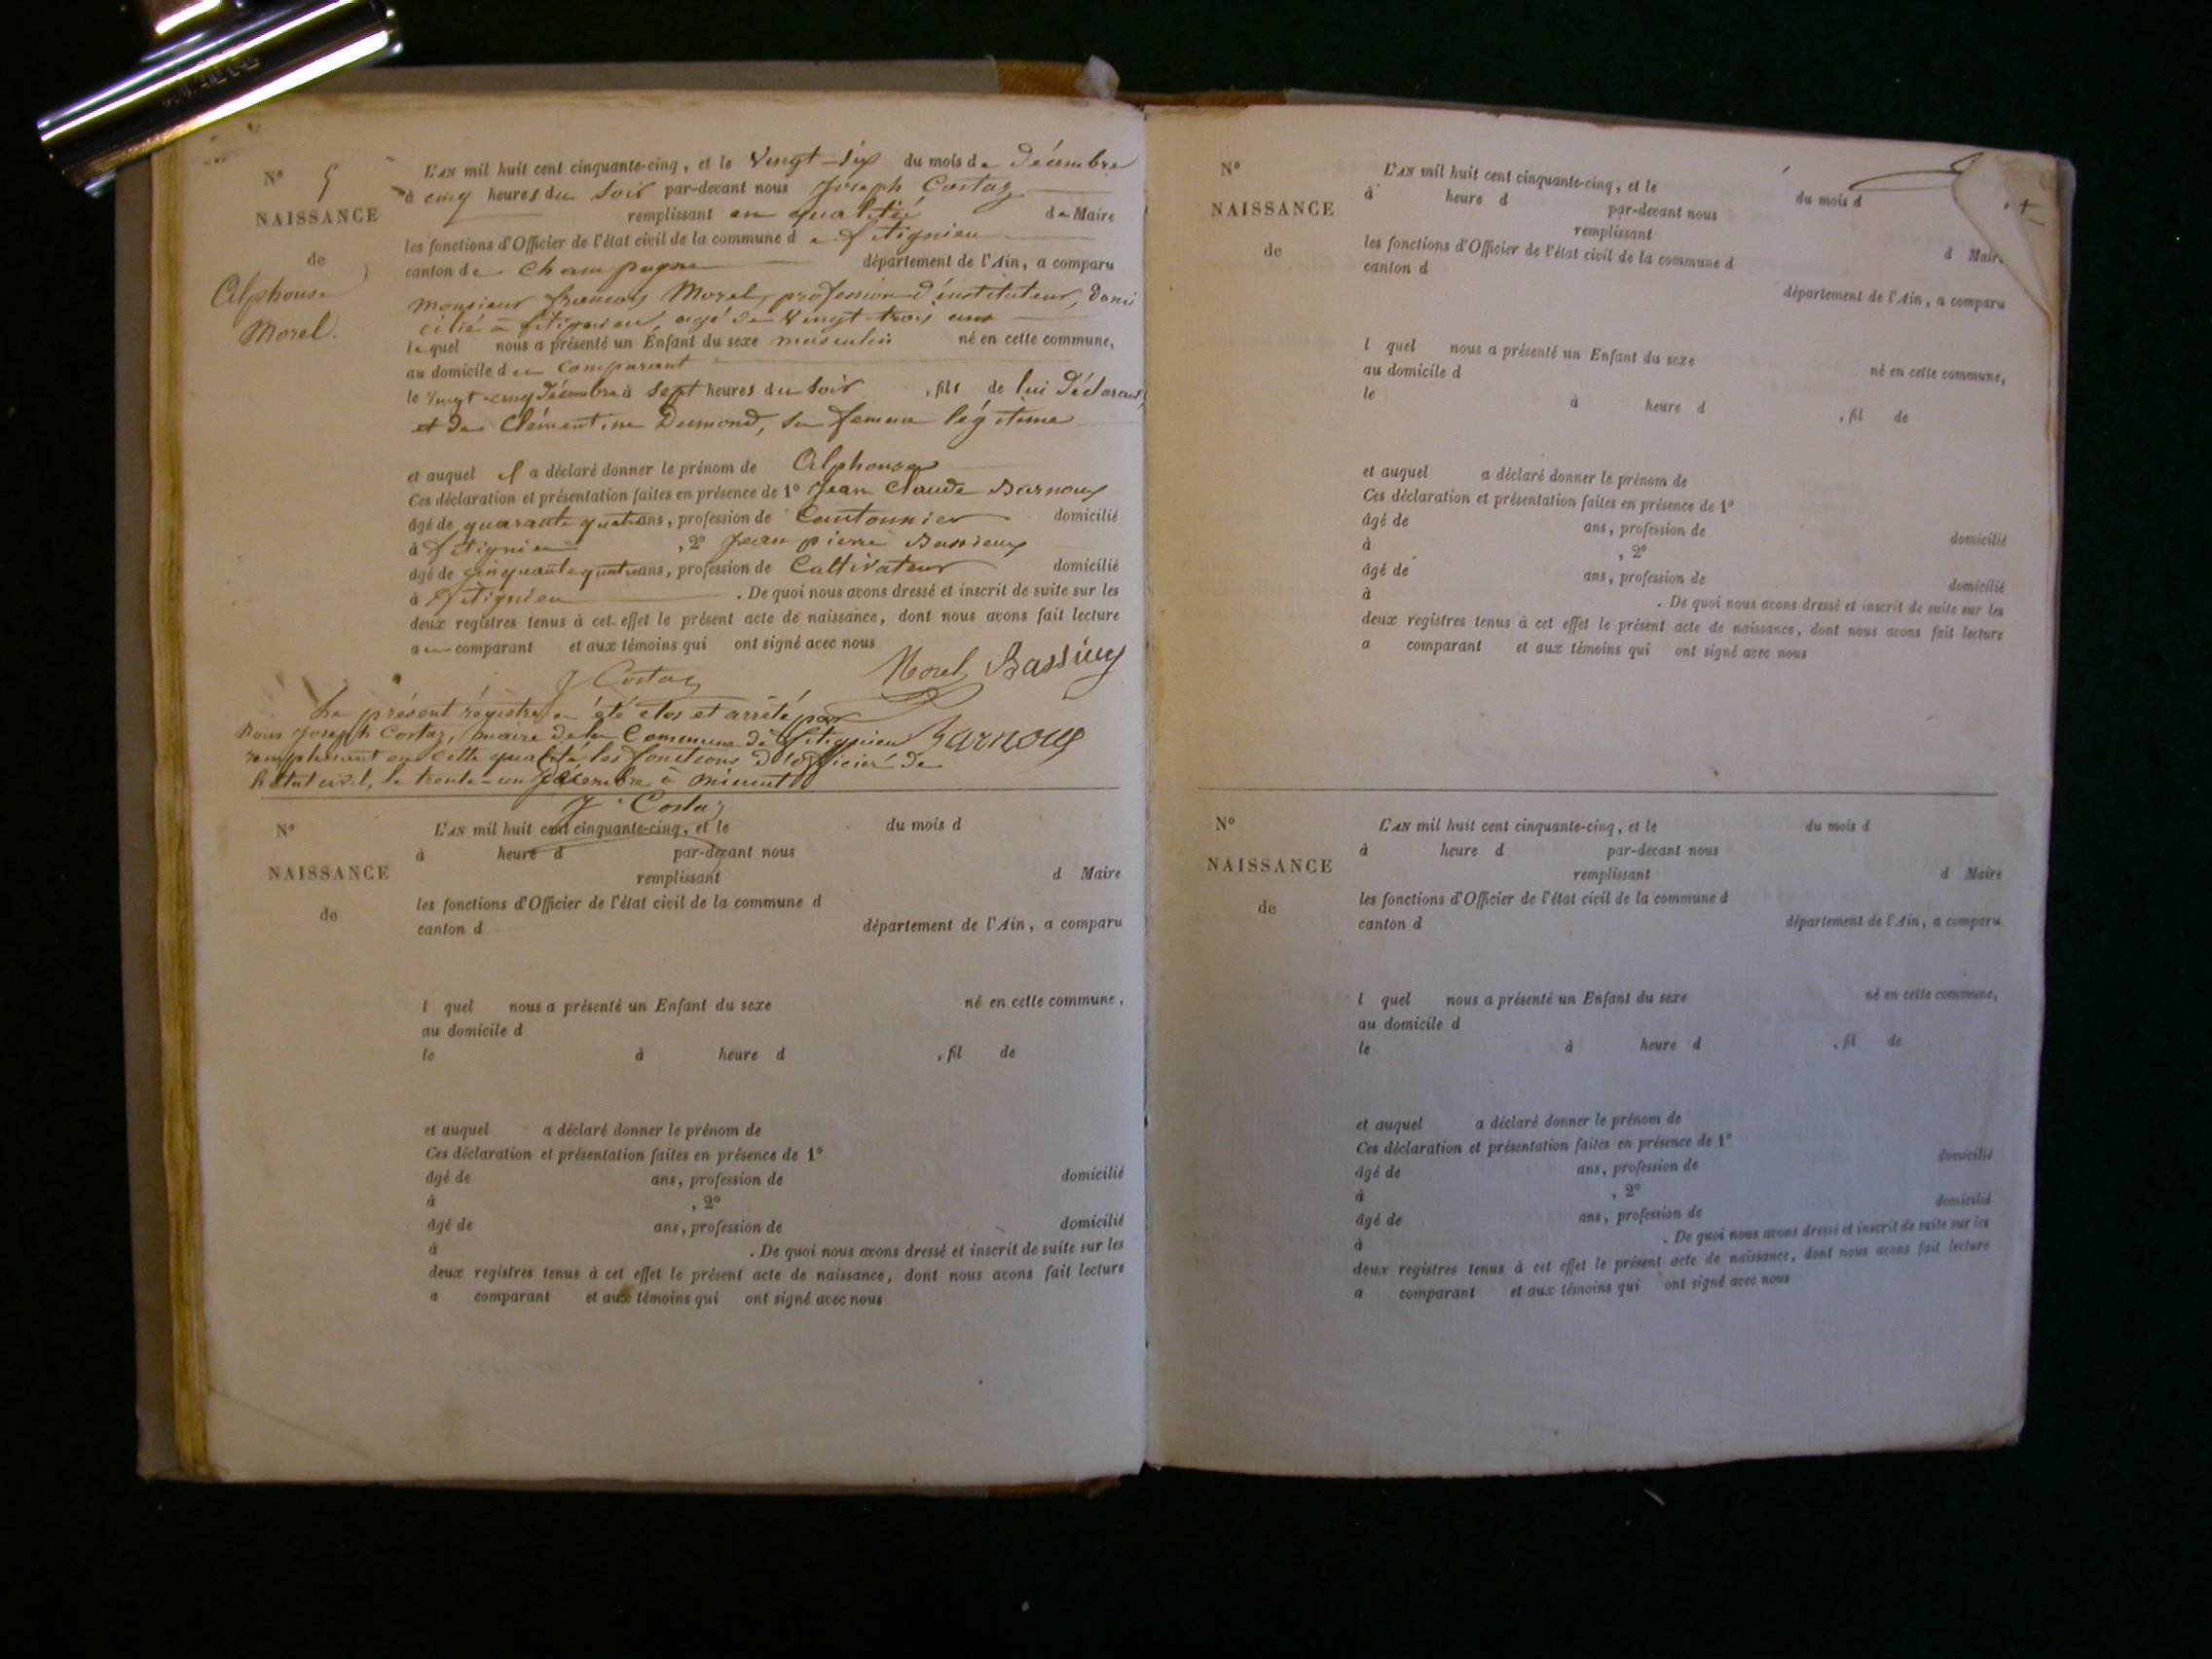 N° 5
NAISSANCE
de
Alphonse
Morel.
L'AN mil huit cent cinquante-cinq, et le Vingt-six du mois de Décembre
à cinq heures du Soir par-devant nous Joseph Costaz
remplissant en qualité de Maire
les fonctions d'Officier de l'état civil de la commune de
canton de Champagne département de l'Ain, a comparu
Monsieur françois Morel, profession d'instituteur, domi
cilié à agé de Vingt-trois ans
lequel nous a présenté un Enfant du sexe masculin né en cette commune,
au domicile du comparant
le Vingt-cinq Décembre à sept heures du soir, fils de lui Déclarant
et de Clémentine sa femme légitime
et auquel il a déclaré donner le prénom de Alphonse
Ces déclaration et présentation faites en présence de 1° Jean Claude Barnoux
âgé de quarante quatre ans, profession de Cantonnier domicilié
à , 2° Jean pierre Bassieux
âgé de cinquante quatre ans, profession de Cultivateur domicilié
à . De quoi nous avons dressé et inscrit de suite sur les
deux registres tenus à cet effet le présent acte de naissance, dont nous avons fait lecture
au comparant et aux témoins qui ont signé avec nous
J Costaz Morel Bassieux
Le présent régistre a été clos et arrêté par
Nous Joseph Costaz, maire de la Commune de Barnoux
remplissant en cette qualité les fonctions d'officier de
l'état civil, le trente-un Décembre à minuit
J. Costaz
N°
NAISSANCE
de
L'AN mil huit cent cinquante-cinq, et le du mois d
à heure d par-devant nous
remplissant d Maire
les fonctions d'Officier de l'état civil de la commune d
canton d département de l'Ain, a comparu
l quel nous a présenté un Enfant du sexe né en cette commune,
au domicile d
le à heure d , fil de
et auquel a déclaré donner le prénom de
Ces déclaration et présentation faites en présence de 1°
âgé de ans, profession de domicilié
à , 2°
âgé de ans, profession de domicilié
à . De quoi nous avons dressé et inscrit de suite sur les
deux registres tenus à cet effet le présent acte de naissance, dont nous avons fait lecture
a comparant et aux témoins qui ont signé avec nous
N°
NAISSANCE
de
L'AN mil huit cent cinquante-cinq, et le du mois d
à heure d par-devant nous
remplissant d Maire
les fonctions d'Officier de l'état civil de la commune d
canton d département de l'Ain, a comparu
l quel nous a présenté un Enfant du sexe né en cette commune,
au domicile d
le à heure d , fil de
et auquel a déclaré donner le prénom de
Ces déclaration et présentation faites en présence de 1°
âgé de ans, profession de domicilié
à , 2°
âgé de ans, profession de domicilié
à . De quoi nous avons dressé et inscrit de suite sur les
deux registres tenus à cet effet le présent acte de naissance, dont nous avons fait lecture
a comparant et aux témoins qui ont signé avec nous
N°
NAISSANCE
de
L'AN mil huit cent cinquante-cinq, et le du mois d
à heure d par-devant nous
remplissant d Maire
les fonctions d'Officier de l'état civil de la commune d
canton d département de l'Ain, a comparu
l quel nous a présenté un Enfant du sexe né en cette commune,
au domicile d
le à heure d , fil de
et auquel a déclaré donner le prénom de
Ces déclaration et présentation faites en présence de 1°
âgé de ans, profession de domicilié
à , 2°
âgé de ans, profession de domicilié
à . De quoi nous avons dressé et inscrit de suite sur les
deux registres tenus à cet effet le présent acte de naissance, dont nous avons fait lecture
a comparant et aux témoins qui ont signé avec nous